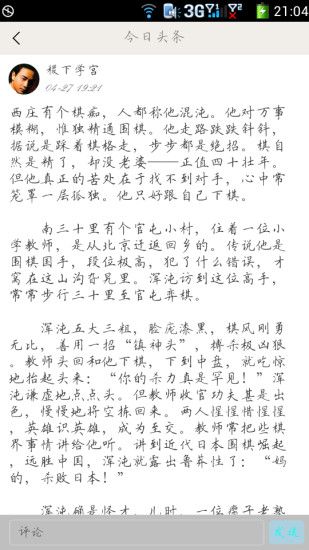 3G 21:04
今日头条
稷下学宫
04-27 19:21
西庄有个棋痴，人都称他混沌。他对万事
模糊，惟独精通围棋。他走路跌跌斜斜，
据说是踩着棋格走，步步都是绝招。棋自
然是精了，却没老婆——正值四十壮年。
但他真正的苦处在于找不到对手，心中常
笼罩一层孤独。他只好跟自己下棋。
南三十里有个官屯小村，住着一位小
学教师，是从北京迁返回乡的。传说他是
围棋国手，段位极高，犯了什么错误，才
窝在这山沟旮旯里。浑沌访到这位高手，
常常步行三十里至官屯弈棋。
浑沌五大三粗，脸庞漆黑，棋风刚勇
无比，善用一招“镇神头”，搏杀极凶狠。
教师头回和他下棋，下到中盘，就吃惊
地抬起头来：“你的杀力真是罕见！”浑
沌谦虚地点点头。但教师收官功夫甚是出
色，慢慢地将空拣回来。两人惺惺惜惺惺，
英雄识英雄，成为至交。教师常把些棋
界事情讲给他听。讲到近代日本围棋崛起，
远胜中国，浑沌就露出鲁莽性子：“妈
的，杀败日本！”
浑沌确是怪才。儿时，一位瘸子老塾
评论
发送